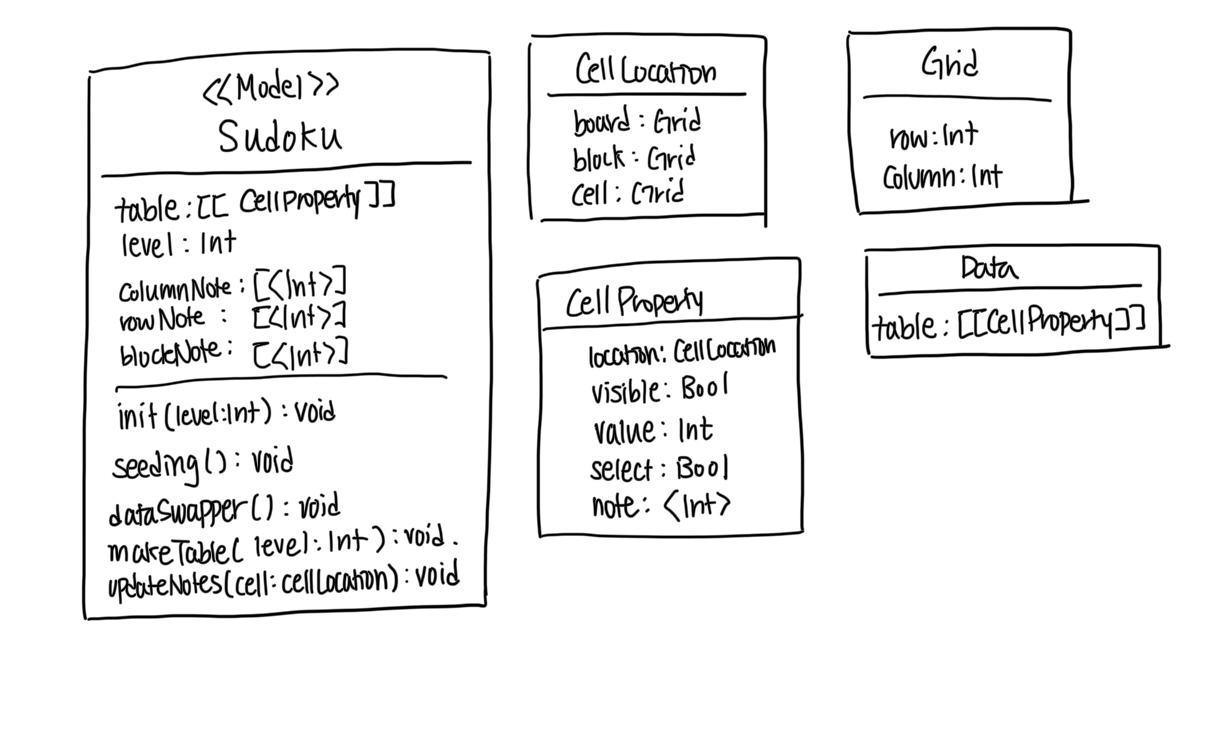 <<Model>>
Sudoku
table:[[ CellProperty]]
level: Int
columnNote: [<Int>]
rowNote : [<Int>]
blockNote: [<Int>]
init(level:Int): void
seeding(): void
dataSwapper(): void
makeTable( level: Int ): void.
updateNotes(cell:cellLocation): void
CellLocation
board: Grid
block: Grid
cell: Grid
Grid
row:Int
column:Int
CellProperty
location: CellLocation
visible: Bool
value: Int
select: Bool
note: <Int>
Data
table: [[CellProperty]]